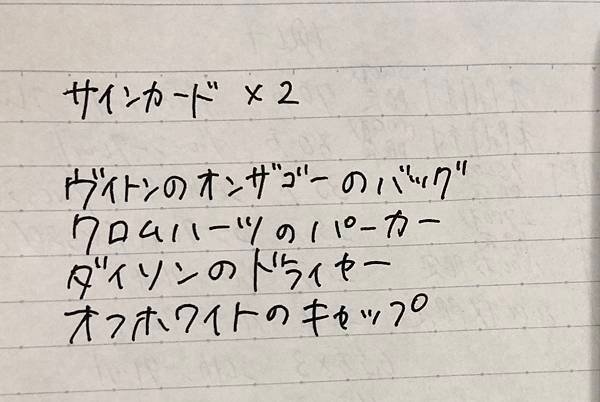 サインカード ×2
ヴィトンのオンザゴーのバッグ
クロムハーツのパーカー
ダイソンのドライヤー
オフホワイトのキャップ